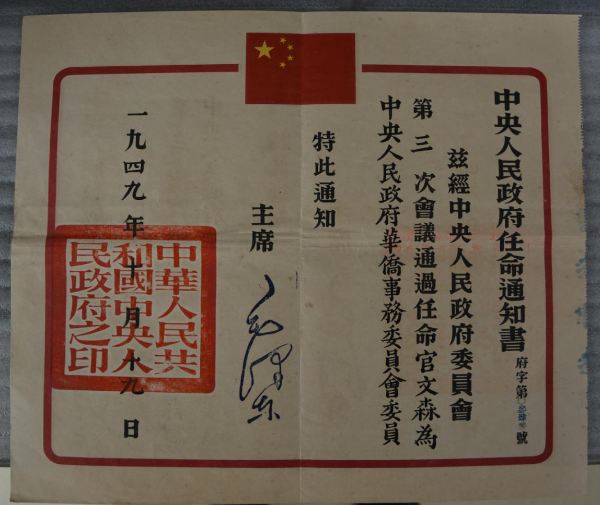 中央人民政府任命通知書
府字第 號
茲經中央人民政府委員會
第三次會議通過任命官文森為
中央人民政府華僑事務委員會委員
特此通知
主席 毛澤东
一九四九年十月十九日
中華人民共
和國中央人
民政府之印